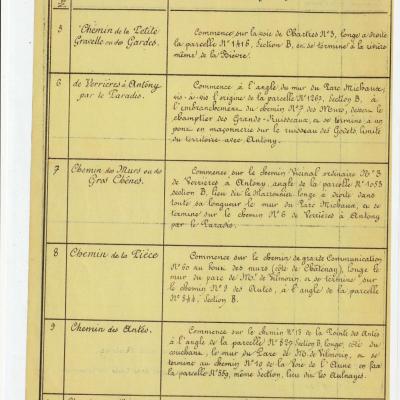 5
Chemin de la Petite
Gravelle ou des Gardes.
Commence sur la voie de Chartres N° 3, longe à droite
la parcelle N° 1416, Section B, et se termine à la rivière
même de la Bièvre.
6
de Verrières à Antony
par le Paradis.
Commence à l'angle du mur du Parc Michaux,
vis-à-vis l'origine de la parcelle N° 1263, Section B, à
l'embranchement du chemin N° 7 des Murs, dessert le
champtier des Grands-Ruisseaux, et se termine à un
pont en maçonnerie sur le ruisseau des Godets, limite
du territoire avec Antony.
7
Chemin des Murs ou des
Gros Chênes.
Commence sur le chemin Vicinal ordinaire N° 3
de Verrières à Antony, angle de la parcelle N° 1053
section B, lieu dit le Marronnier longe à droite dans
toute sa longueur le mur du Parc Michaux, et se
termine sur le chemin N° 6 de Verrières à Antony
par le Paradis.
8
Chemin de la Pièce
Commence sur le chemin de grande Communication
N° 60 au bout des murs (côté de Châtenay), longe le
mur du parc de Mr de Vilmorin, et se termine sur
le chemin N° 9 des Antes, à l'angle de la parcelle
N° 544, Section B.
9
Chemin des Antes.
Commence sur le chemin N° 13 de la Pointe des Antes
à l'angle de la parcelle N° 527 Section B, longe, côté du
couchant, le mur du Parc de M. de Vilmorin, et se
termine au chemin N° 10 de la Voie de l'Aune en face
la parcelle N° 559, même Section, lieu dit les Aulnayes.